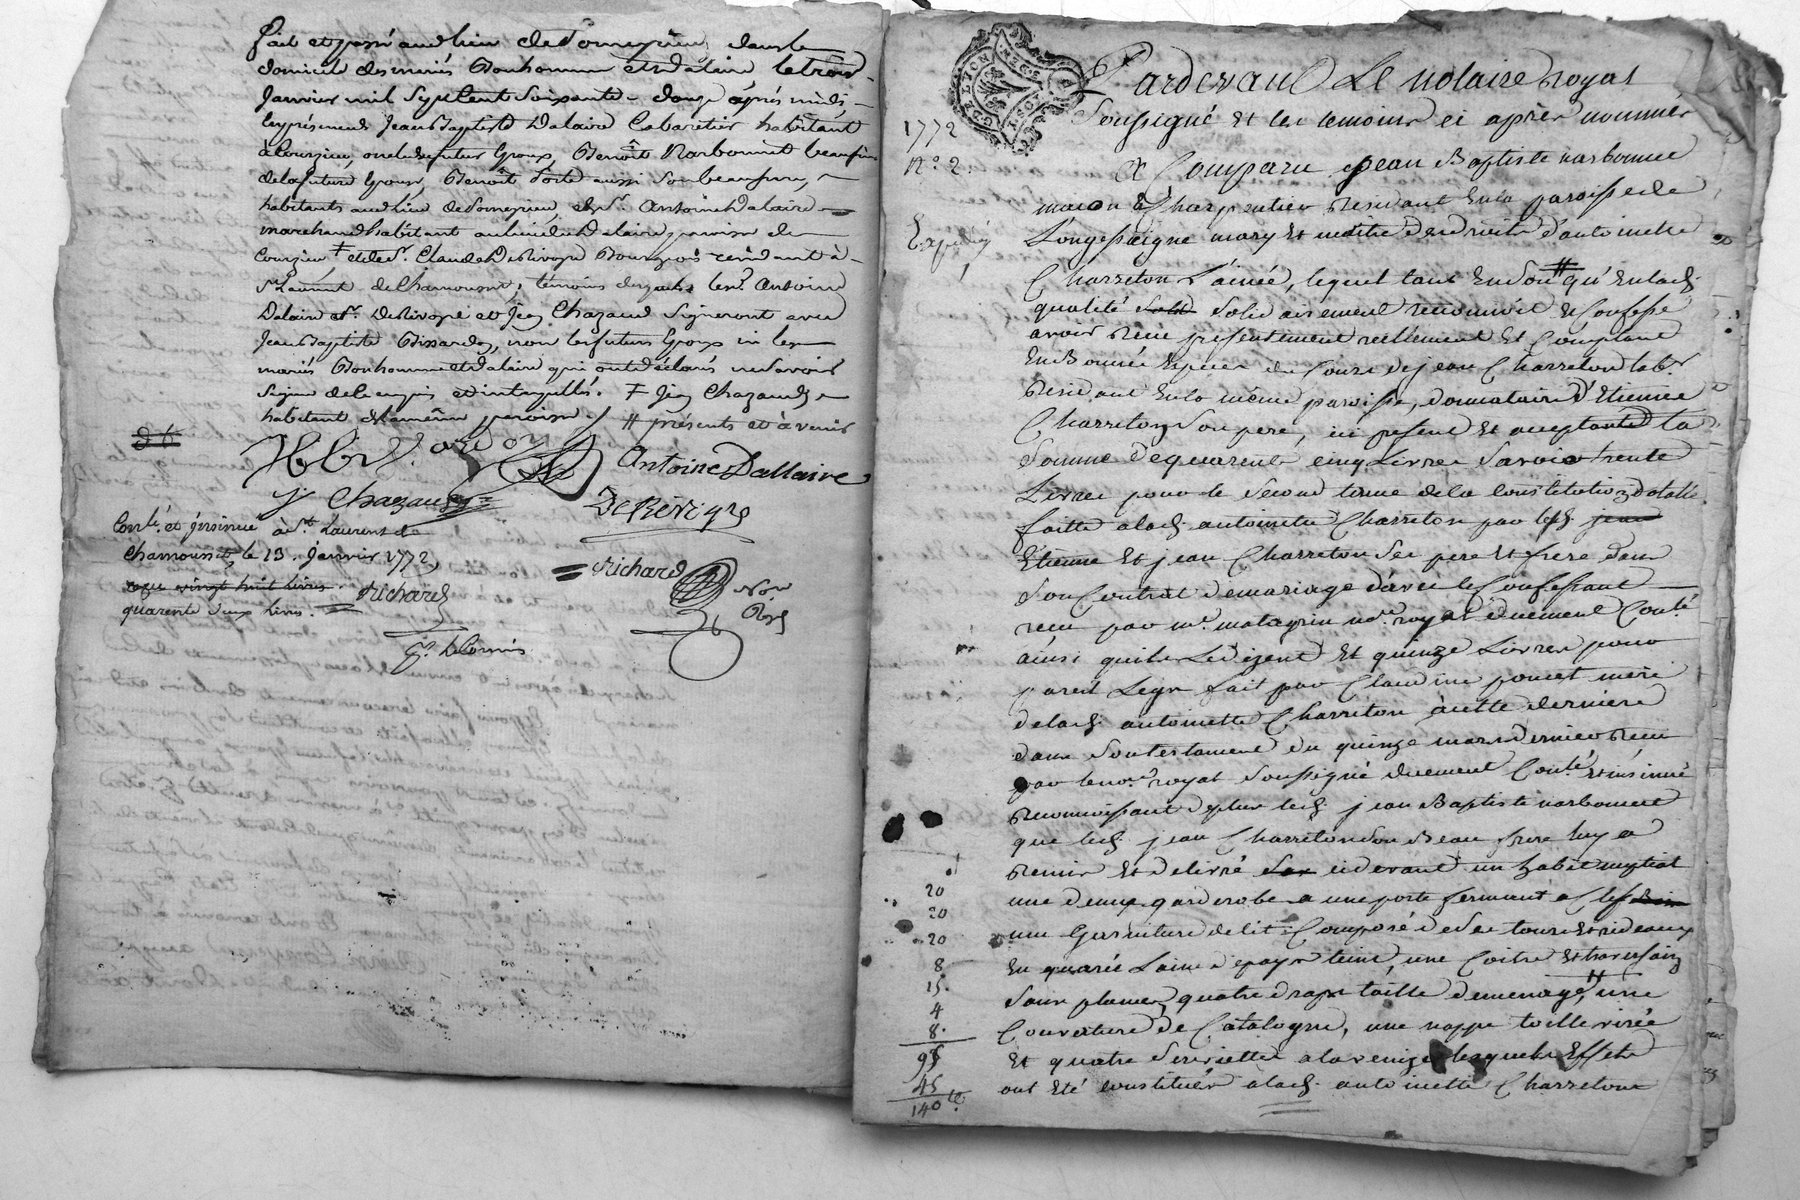 Fait et passé audlieu de Somezieu, dans le
domicile des mariés Bonhomme et Dalaire, le trois
Janvier mil Septcent Soixante-douze après midi
en présence Jean Baptiste Dalaire Cabaretier habitant
à Courzieu, oncle du futur Epoux, Benoît Narbonnet beaufrere
de la future Epouse, Benoît aussi Son beaufrere,
habitants audlieu de Somezieu, et Sr. Antoine Dalaire
marchand habitant au lieu du Dalaire paroisse de
Courzieu ‡ et de Sr. Claude DeRivoyre Bourgeois résidant à
St Laurent de Chamousset, témoins lesquels led. Antoine
Dalaire et Sr. DeRivoyre et Jean Chazaud Signeront avec
Jean Baptiste non les futurs Epoux ni les
mariés Bonhomme et Dalaire qui ont déclaré ne Savoir
Signer de ce enquis et interpellés. ‡ Jean Chazaud
habitant de la même paroisse // présents et à venir
Antoine Dallaire
J Chazaud
De Rivoyre
Conlé. et insinué à St. Laurent de
Chamousset, le 13. Janvier 1772
reçu vingt huit livres. Richard
quarente deux livres.
Richard
Nore
Roy
1772
N.o 2.
Expedié
Pardevant Le Notaire Royal
Soussigné Et les temoins ci après nommés
A Comparu Jean Baptiste narbonnet
macon & Charpentier Residant En la paroisse de
Longessaigne mary Et maitre des droits d'antoinette
Charreton L'ainée, lequel tant En Son // qu'En lad.
qualité Solidairement reconnoit Et Confesse
avoir Receu presentement reellement Et Comptant
En Bonnes Especes du Cours de jean Charreton labr.
Residant En la même paroisse, donnataire d'Etienne
Charreton Son pere, ici present Et acceptant la
Somme De quarente cinq Livres Savoir trente
Livres pour le Second terme de la Constitution dotalle
faitte a lad. antoinette Charreton par lesd. jean
Etienne Et jean Charreton Ses pere Et frere dans
Son Contrat de mariage d'avec le Confessant
recu par me. matagrin nore. royal duement Conlé.
ainsi quils Le dizent Et quinze Livres pour
pareil Legs fait par Claudine poncet mere
de lad. antoinette Charreton à cette derniere
dans Son testament du quinze mars dernier Receu
par le nore. royal Soussigné duement Conlé. Et insinué
Reconnoissant deplus led. jean Baptiste narbonnet
que led. jean Charreton Son Beau frere luy a
Remis Et delivré cidevant un habit nuptial
une demy garderobe a une porte fermant a Clef
une Garniture de lit Composée de Ses tours Et rideaux
En quarré Laine d'epays teint, une Coitre Et traversain
Sans plumes, quatre draps toille de menage // une
Couverture de Catalogne, une nappe toille virée
Et quatre Serviettes a la venize lesquels Effets
ont Eté constitués a lad. antoinette Charreton
20
20
20
8
15
4
8.
95
45
140 lt.